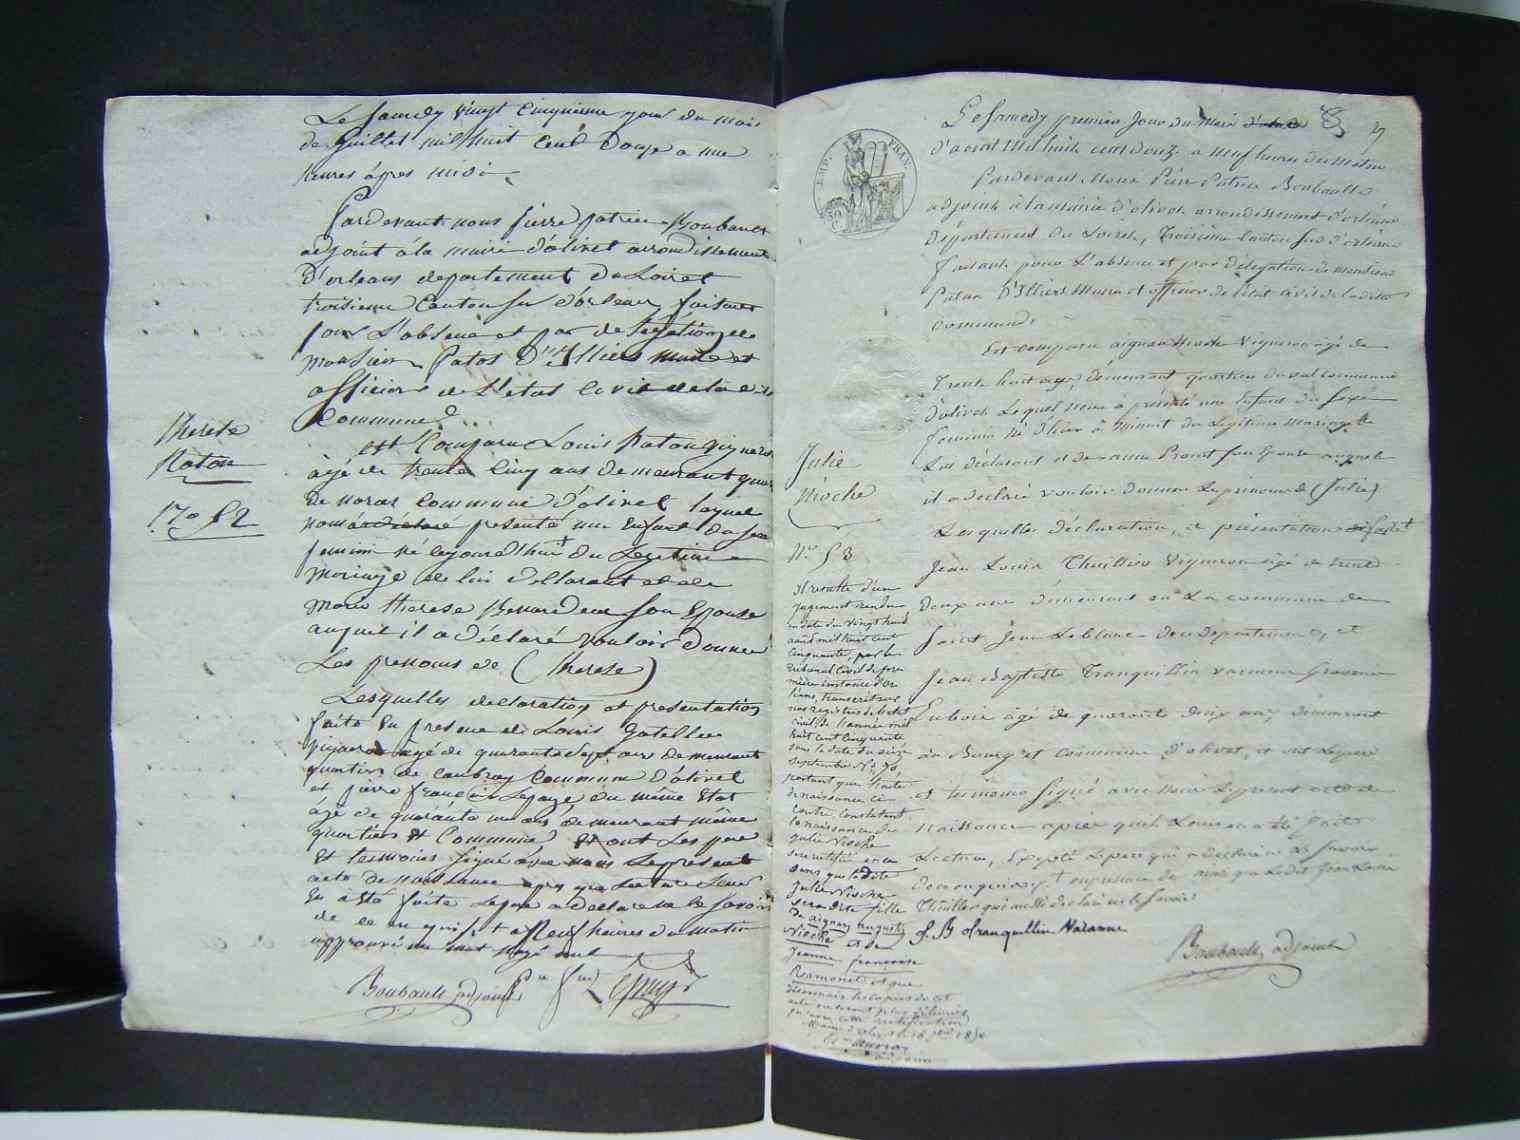 Le samedy vingt cinquieme jour du mois
de Juillet mil huit cent douze a une
heures après midi
Pardevant nous pierre patrice Boubault
adjoint á la mairie d'olivet arrondissement
D'orleans departement du Loiret
troisieme Canton sud d'orleans faisant
pour L'absence et par delegation de
monsieur Patas D'Illiers maire et
officier de L'etat Civil de la dite
Commune
est Comparu Louis paton vigneron
âgé de trente Cinq ans demeurant quartier
de noras Commune d'olivet lequel
nomá declaré presenté une Enfant du sexe
feminin né cejourd'hui du Legitime
Mariage de lui declarant et de
Marie therese Bernardeau son Epouse
auquel il a déclaré vouloir donner
Les prenoms de (therese)
Lesquelles declaration et presentation
faite En presence de Louis Gatellier
vigneron agé de quarante sept ans demeurant
quartier de Caubray Commune d'olivet
et pierre francois Lepage du même Etat
âgé de quarante un ans demeurant même
quartier et Commune et ont Les pere
Et temoins signé avec nous Le present
acte de naissance apres que Lecture Leur
En a été faite Le pere a declaré ne le savoir
de ce enquis et a Neuf heures du matin
approuvé un mot rayé nul
Boubault adjoint Lepage
Therese
Paton
No 52
Le Samedy premier Jour du Mois
d'aoust Mil huit cent douze a neuf heures du Matin
Pardevant Nous Pierre Patrice Boubault
adjoint à la mairie d'olivet arrondissement d'orléans
Département du Loiret, Troisième Canton Sud d'orléans
Faisant pour L'absence et par délégation de monsieur
Patas D'Illiers Maire et officier de l'état civil de la ditte
Commune.
Est comparu aignan Nioche Vigneron âgé de
Trente huit ans, demeurant quartier du val commune
d'olivet Lequel nous à présenté une Enfant du sexe
féminin né d'hier à minuit du Légitime Mariage de
Lui déclarant et de son Epouse auquel
il a déclaré vouloir donner Le prénom de (Julie)
Lesquelles déclaration, et présentation
Jean Louis Thuillier Vigneron âgé de trente
deux ans demeurant en La commune de
Saint Jean Leblanc dece département, et
Jean Baptiste Tranquillin varanne Graveur
En bois âgé de quarante deux ans demeurant
au Bourg et commune d'olivet, et ont Le pere
et temoins Signé avec Nous Le present acte de
Naissance apres qu'il Leur en a été fait
Lecture, Excepté Le pere qui a déclaré ne le savoir
de ce enquis et ainsi que Ledit Jean Louis
Thuillier qui a aussi déclaré ne le savoir
J. B Tranquillin Varanne
Boubault adjoint
EMP. FRAN.
Julie
Nioche
No 53
Il résulte d'un
jugement rendu
en date du vingt huit
août mil huit cent
cinquante, par le
tribunal civil de pre
mière instance d'Or
léans, transcrit sur
nos registres de l'état
civil, de l'année mil
huit cent cinquante
sous la date du seize
septembre No 96
portant que l'acte
de naissance ci-
contre constatant
la naissance de
Julie Nioche
sera rectifié en ce
sens que la dite
Julie Nioche
sera dite fille
de aignan auguste
Nioche et de
Jeanne françoise
Ramonet et que
désormais les copies de cet
acte ne seront plus délivrées
qu'avec cette rectification
adjoint